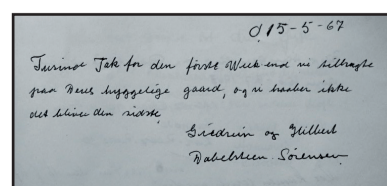 d. 15-5-67
Tusinde Tak for den første Week-end vi tilbragte
paa Deres hyggelige gaard, og vi haaber ikke
det bliver den sidste.
og Hilbert
Dabelsteen. Sørensen.